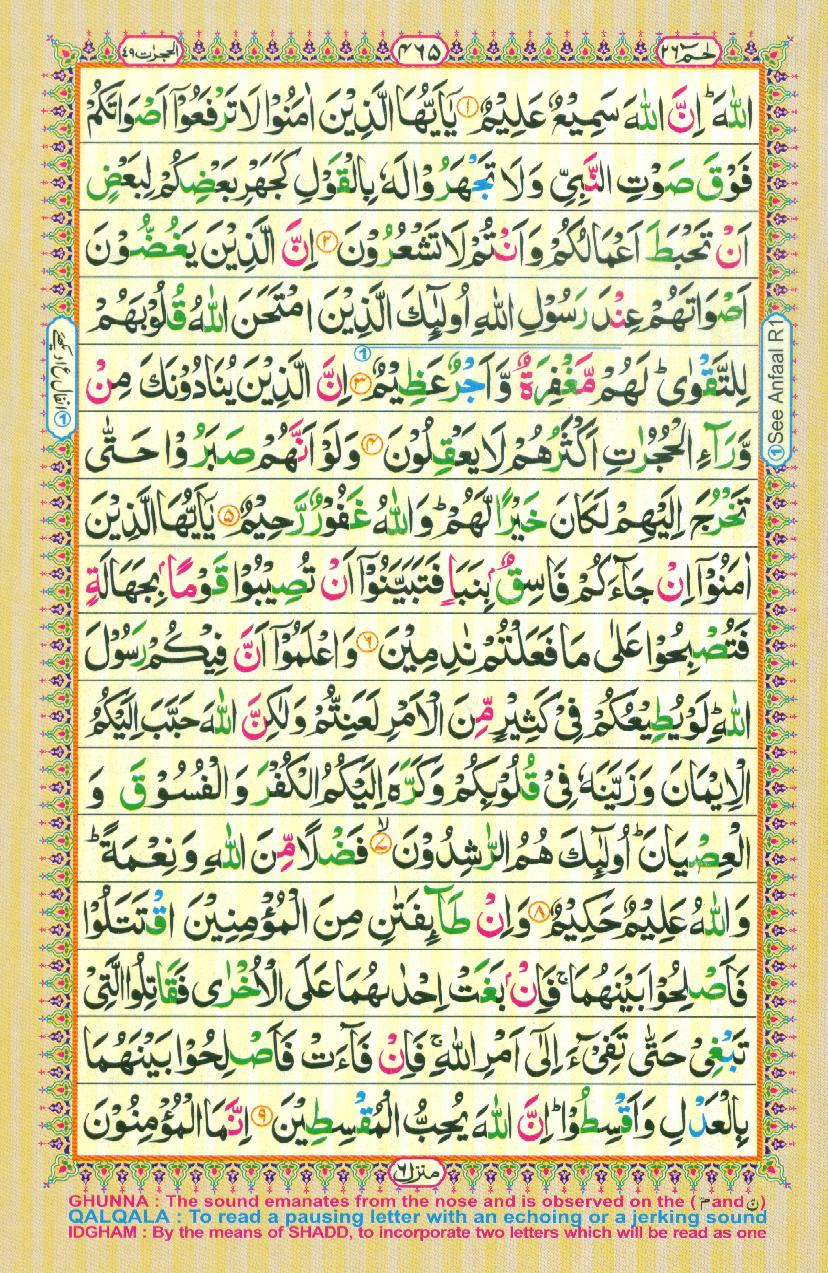 الحجرات ٤٩
٤٦٥
حٰمٓ ٢٦
اللّٰهَ ؕ اِنَّ اللّٰهَ سَمِيْعٌ عَلِيْمٌ ۝١ يٰۤاَيُّهَا الَّذِيْنَ اٰمَنُوْا لَا تَرْفَعُوْۤا اَصْوَاتَكُمْ
فَوْقَ صَوْتِ النَّبِيِّ وَلَا تَجْهَرُوْا لَهٗ بِالْقَوْلِ كَجَهْرِ بَعْضِكُمْ لِبَعْضٍ
اَنْ تَحْبَطَ اَعْمَالُكُمْ وَاَنْتُمْ لَا تَشْعُرُوْنَ ۝٢ اِنَّ الَّذِيْنَ يَغُضُّوْنَ
اَصْوَاتَهُمْ عِنْدَ رَسُوْلِ اللّٰهِ اُولٰٓئِكَ الَّذِيْنَ امْتَحَنَ اللّٰهُ قُلُوْبَهُمْ
لِلتَّقْوٰى ؕ لَهُمْ مَّغْفِرَةٌ وَّاَجْرٌ عَظِيْمٌ ۝٣ اِنَّ الَّذِيْنَ يُنَادُوْنَكَ مِنْ
وَّرَآءِ الْحُجُرٰتِ اَكْثَرُهُمْ لَا يَعْقِلُوْنَ ۝٤ وَلَوْ اَنَّهُمْ صَبَرُوْا حَتّٰى
تَخْرُجَ اِلَيْهِمْ لَكَانَ خَيْرًا لَّهُمْ ؕ وَاللّٰهُ غَفُوْرٌ رَّحِيْمٌ ۝٥ يٰۤاَيُّهَا الَّذِيْنَ
اٰمَنُوْۤا اِنْ جَآءَكُمْ فَاسِقٌۢ بِنَبَاٍ فَتَبَيَّنُوْۤا اَنْ تُصِيْبُوْا قَوْمًاۢ بِجَهَالَةٍ
فَتُصْبِحُوْا عَلٰى مَا فَعَلْتُمْ نٰدِمِيْنَ ۝٦ وَاعْلَمُوْۤا اَنَّ فِيْكُمْ رَسُوْلَ
اللّٰهِ ؕ لَوْ يُطِيْعُكُمْ فِيْ كَثِيْرٍ مِّنَ الْاَمْرِ لَعَنِتُّمْ وَلٰكِنَّ اللّٰهَ حَبَّبَ اِلَيْكُمُ
الْاِيْمَانَ وَزَيَّنَهٗ فِيْ قُلُوْبِكُمْ وَكَرَّهَ اِلَيْكُمُ الْكُفْرَ وَالْفُسُوْقَ وَ
الْعِصْيَانَ ؕ اُولٰٓئِكَ هُمُ الرّٰشِدُوْنَ ۝٧ۙ فَضْلًا مِّنَ اللّٰهِ وَنِعْمَةً ؕ
وَاللّٰهُ عَلِيْمٌ حَكِيْمٌ ۝٨ وَاِنْ طَآئِفَتٰنِ مِنَ الْمُؤْمِنِيْنَ اقْتَتَلُوْا
فَاَصْلِحُوْا بَيْنَهُمَا ۚ فَاِنْۢ بَغَتْ اِحْدٰىهُمَا عَلَى الْاُخْرٰى فَقَاتِلُوا الَّتِيْ
تَبْغِيْ حَتّٰى تَفِيْٓءَ اِلٰۤى اَمْرِ اللّٰهِ ۚ فَاِنْ فَآءَتْ فَاَصْلِحُوْا بَيْنَهُمَا
بِالْعَدْلِ وَاَقْسِطُوْا ؕ اِنَّ اللّٰهَ يُحِبُّ الْمُقْسِطِيْنَ ۝٩ اِنَّمَا الْمُؤْمِنُوْنَ
① See Anfaal R1
منزل ٦
GHUNNA : The sound emanates from the nose and is observed on the ( مّ and نّ )
QALQALA : To read a pausing letter with an echoing or a jerking sound
IDGHAM : By the means of SHADD, to incorporate two letters which will be read as one